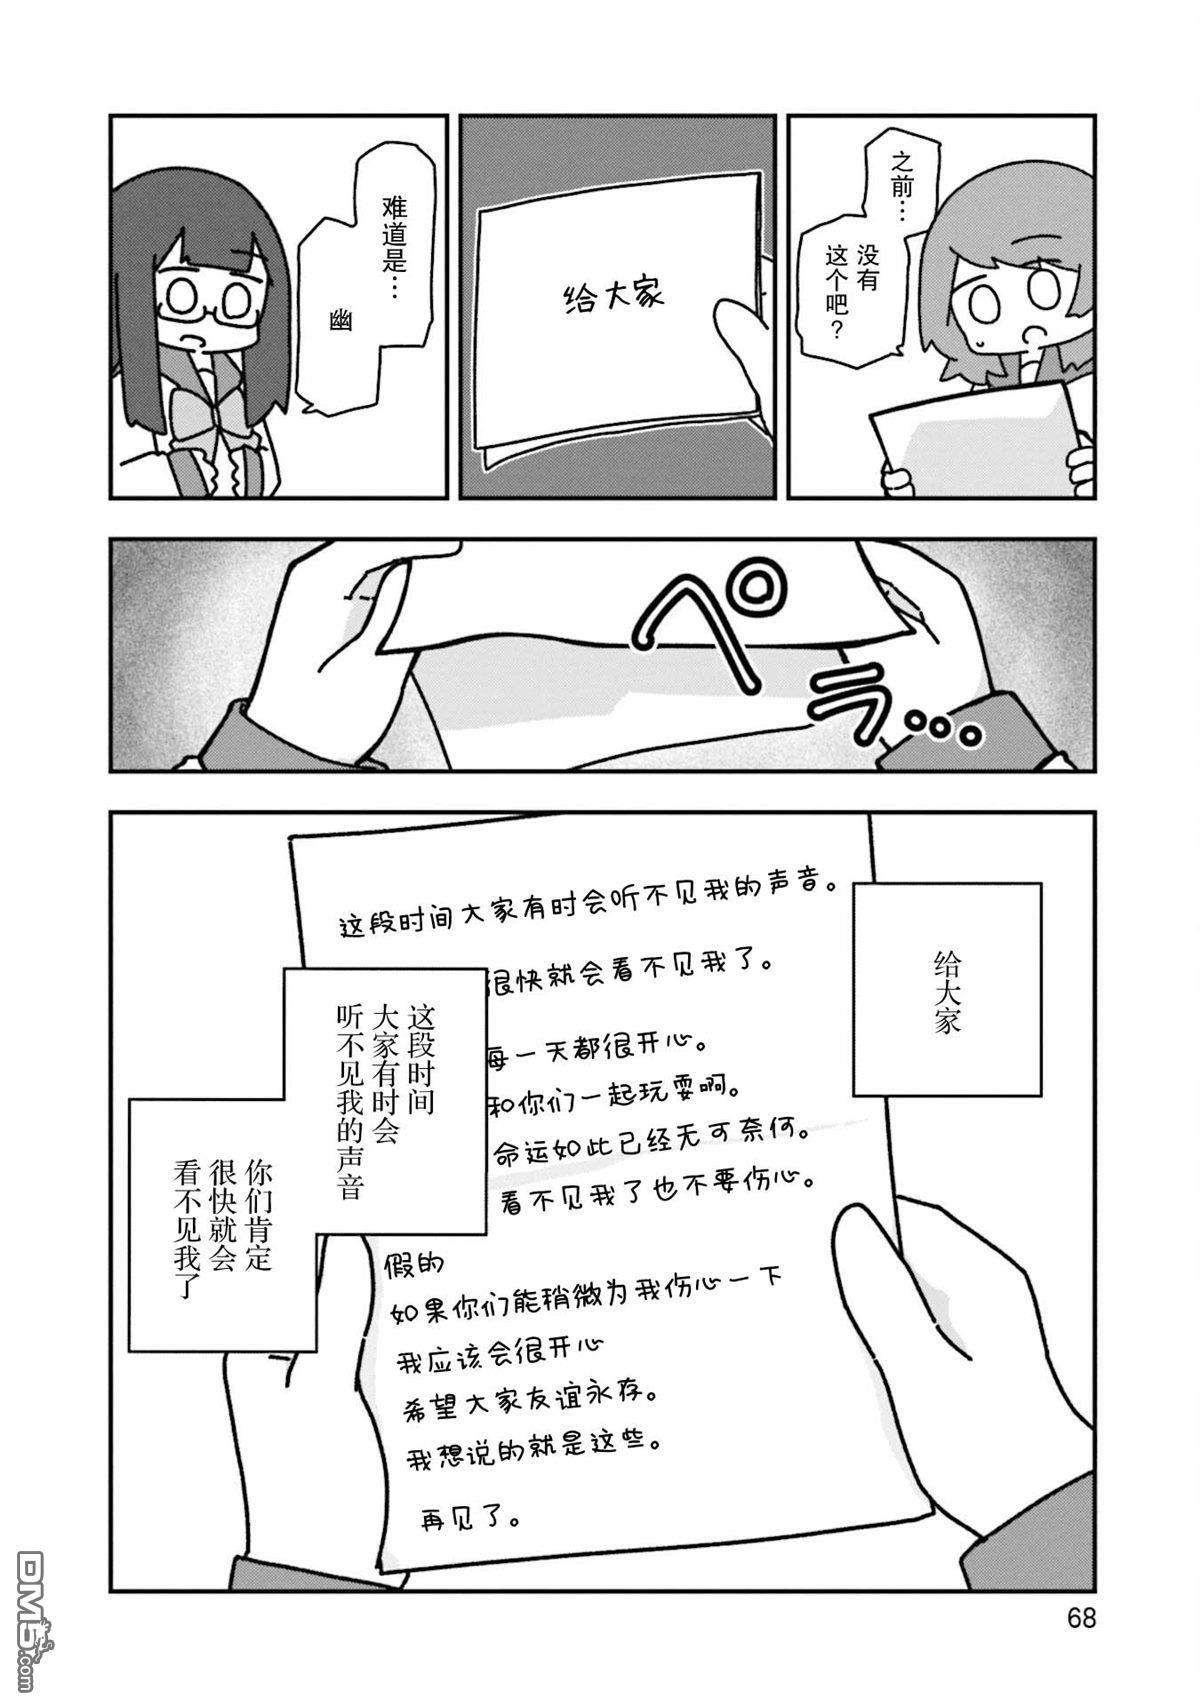 之前…
没有
这个吧？
给大家
难道是…
幽
ペラ…
给大家
这段时间大家有时会听不见我的声音。
很快就会看不见我了。
每一天都很开心。
和你们一起玩耍啊。
命运如此已经无可奈何。
看不见我了也不要伤心。
假的
如果你们能稍微为我伤心一下
我应该会很开心
希望大家友谊永存。
我想说的就是这些。
再见了。
这段时间
大家有时会
听不见我的声音
你们肯定
很快就会
看不见我了
68
DM5
.com